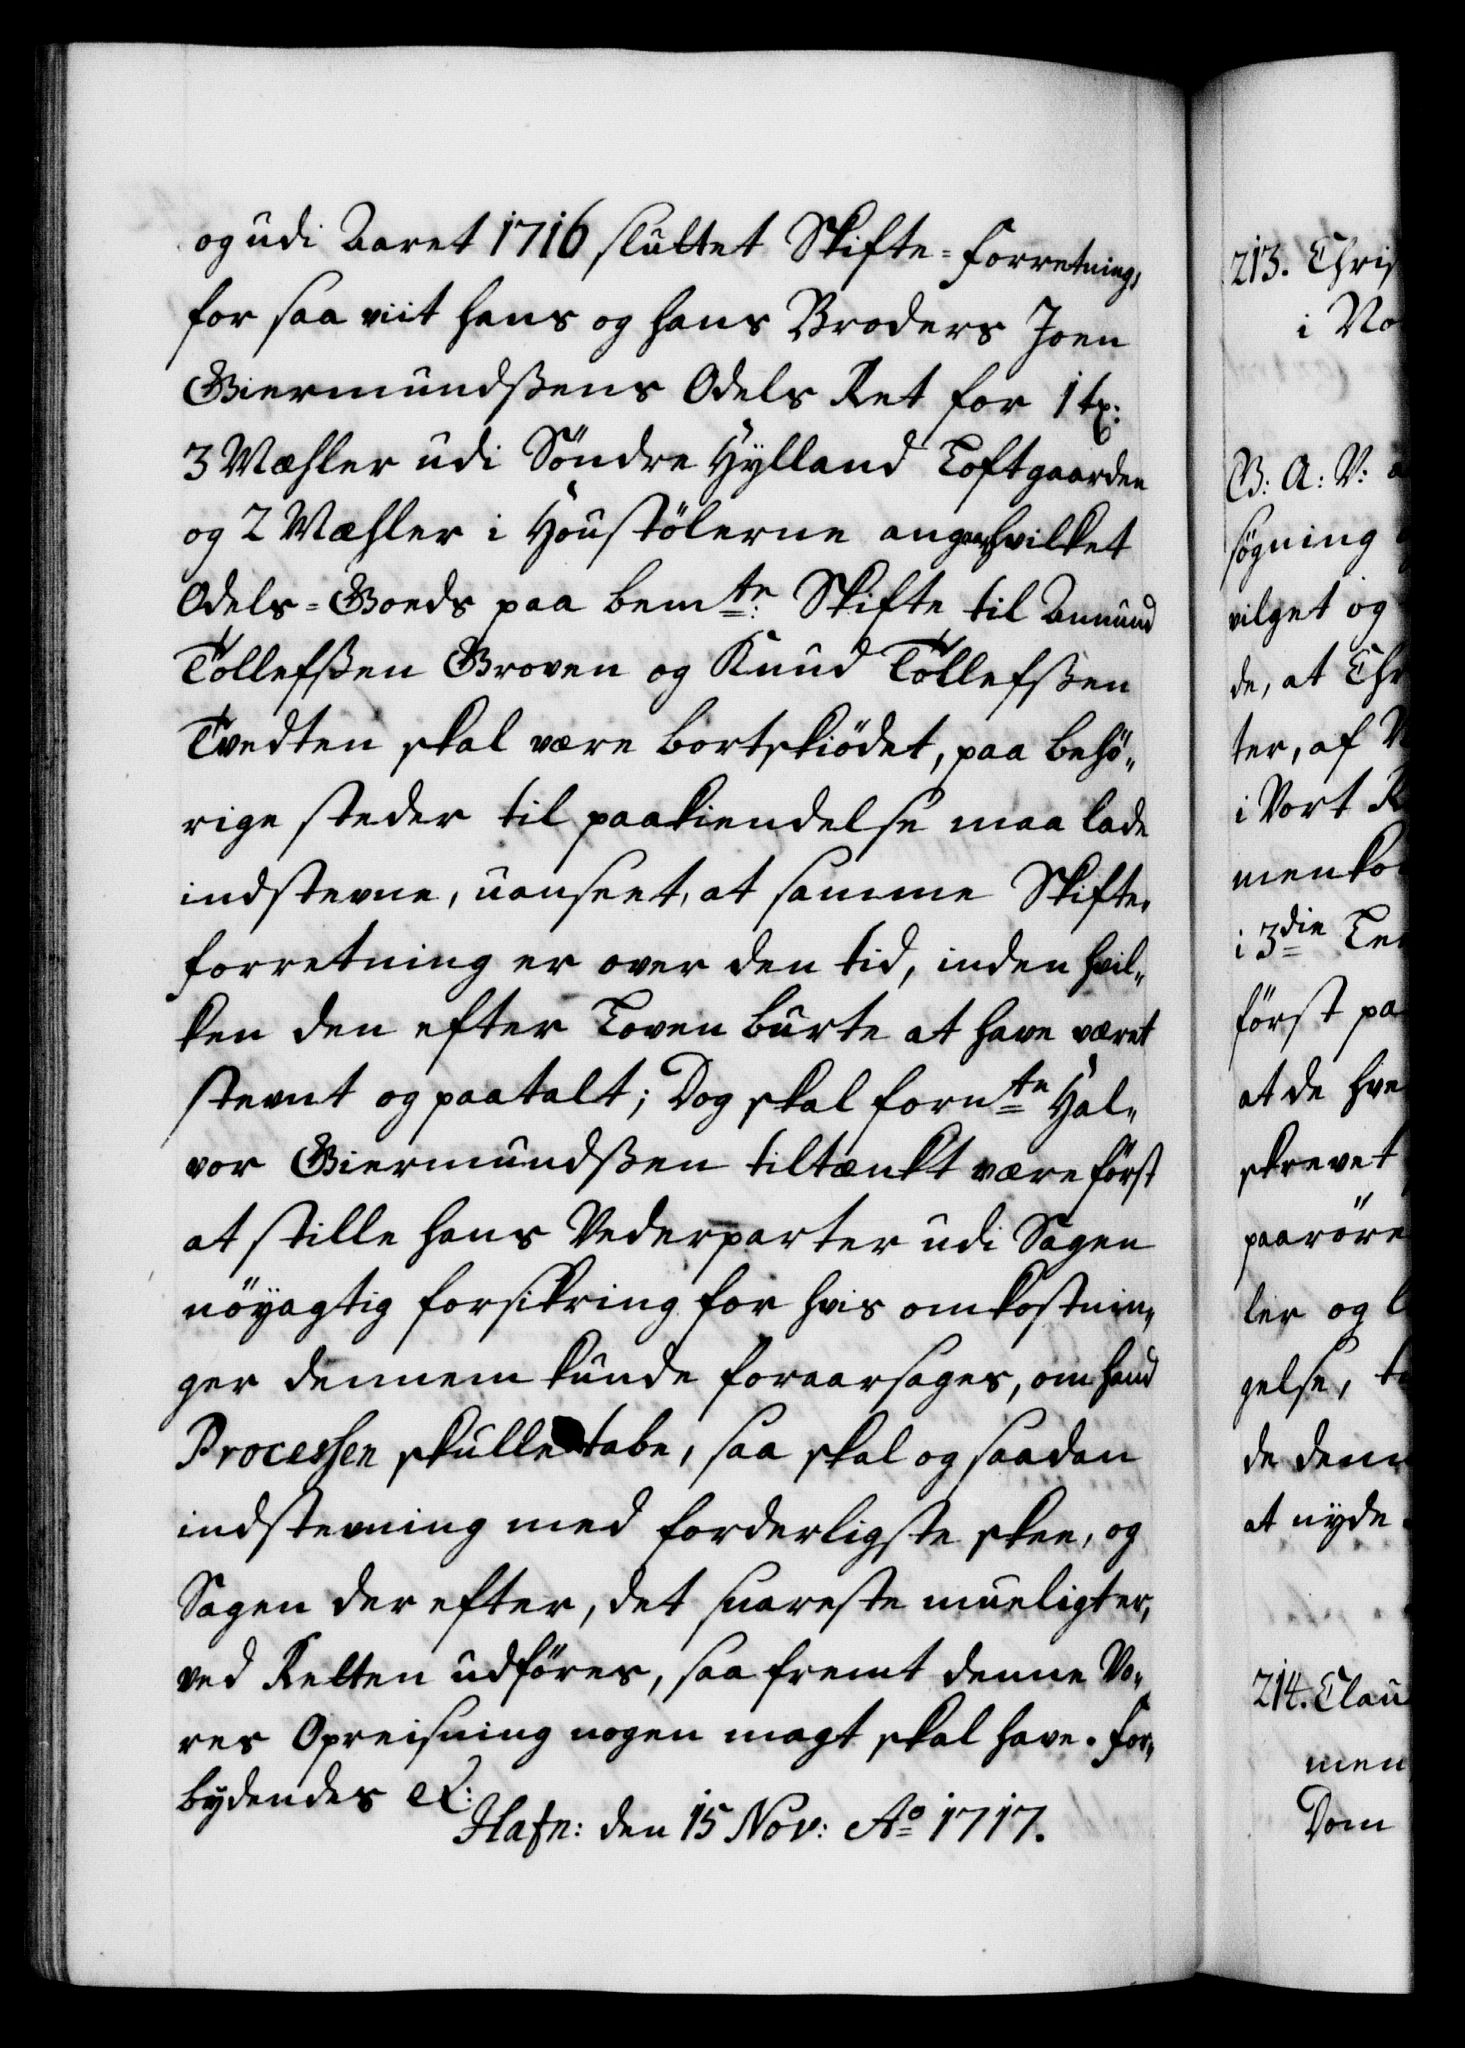 og udi Aaret 1716 sluttet Skifte=forretning,
for saa viit hans og hans Broders Joen
Giermundßens Odels Ret for 1 tp:
3 Mæhler udi Söndre Hylland Loftgaarden
og 2 Mæhler i Houstölerne angaar hvilket
Odels=Goeds paa bemte: Skifte til Aamund
Töllefßen Groven og Knud Töllefßen
Tvedten skal være bortskiödet, paa behö„
rige steder til paakiendelse maa lade
indstevne, uanseet, at samme Skifte„
forretning er over den tid, inden hvil„
ken den efter Loven burte at have været
stevnt og paatalt; Dog skal fornte Hal„
vor Giermundßen tiltænkt være först
at stille hans Vederparter udi Sagen
nöyagtig forsikring for hvis omkostnin„
ger dennem kunde foraarsages, om hand
Processen skulle tabe, saa skal og saadan
indstevning med forderligste skee, og
Sagen der efter, det snareste mueligt er,
ved Retten udföres, saa fremt denne Vo„
res Opreisning nogen magt skal have. For„
bydendes etc:
Hafn: den 15 Nov: Ao 1717.
213. Chris
i No
B: A: V: a
søgning
vilget og
de, at Chr
ter, af
i Vort R
menko
i 3die Le
först pa
at de hve
skrevet
paaröre
ler og l
gelse, t
de denn
at nyde
214. Clau
men
Dom